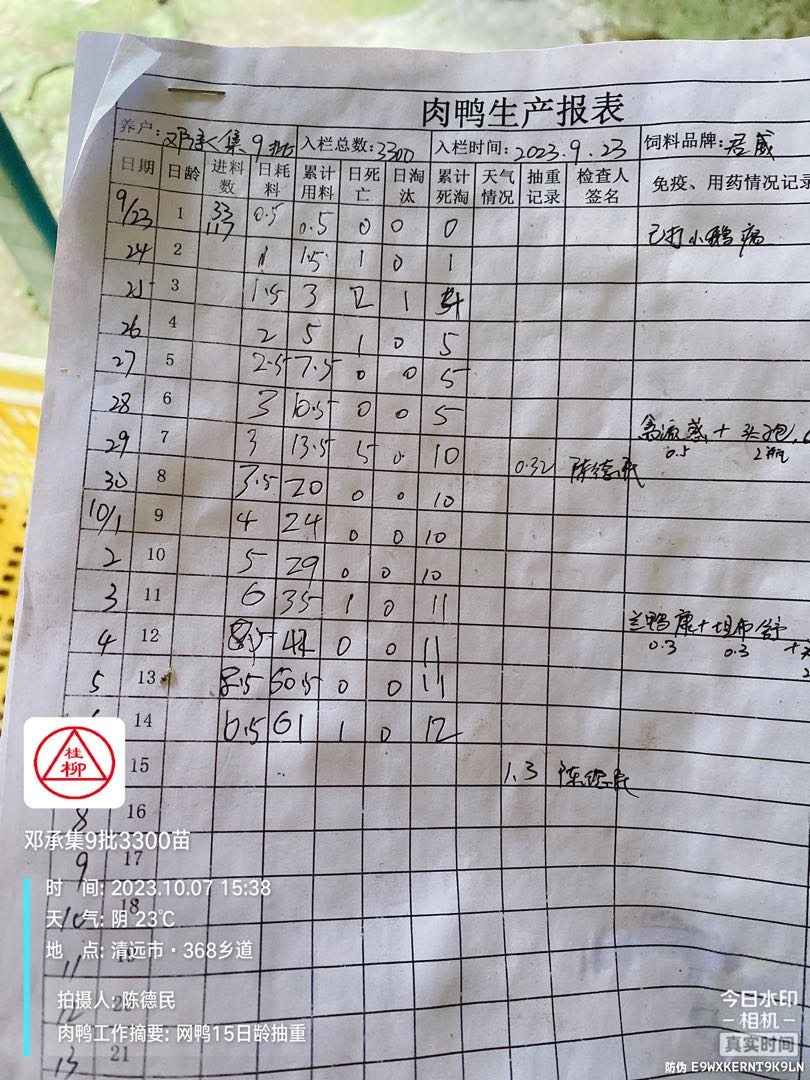 肉鸭生产报表
养户: 邓承集9批 入栏总数: 3300 入栏时间: 2023.9.23 饲料品牌: 君威
日期 日龄 进料数 日耗料 累计用料 日死亡 日淘汰 累计死淘 天气情况 抽重记录 检查人签名 免疫、用药情况记录
9/23 1 33 117 0.5 0.5 0 0 0 已打小鹅病
24 2 1 1.5 1 0 1
25 3 1.5 3 2 1 4
26 4 2 5 1 0 5
27 5 2.5 7.5 0 0 5
28 6 3 10.5 0 0 5
29 7 3 13.5 5 0 10 0.32 陈德民 0.5 2瓶
30 8 3.5 20 0 0 10
10/1 9 4 24 0 0 10
2 10 5 29 0 0 10
3 11 6 35 1 0 11
4 12 8.5 42 0 0 11 0.3 0.3
5 13 8.5 50.5 0 0 11
14 10.5 61 1 0 12
15 1.3 陈德民
8 16
9 17
10 18
11 19
12 20
13 21
桂柳
邓承集9批3300苗
时 间: 2023.10.07 15:38
天 气: 阴 23℃
地 点: 清远市·368乡道
拍摄人: 陈德民
肉鸭工作摘要: 网鸭15日龄抽重
今日水印
-相机-
真实时间
防伪 E9WXKERNT9K9LN